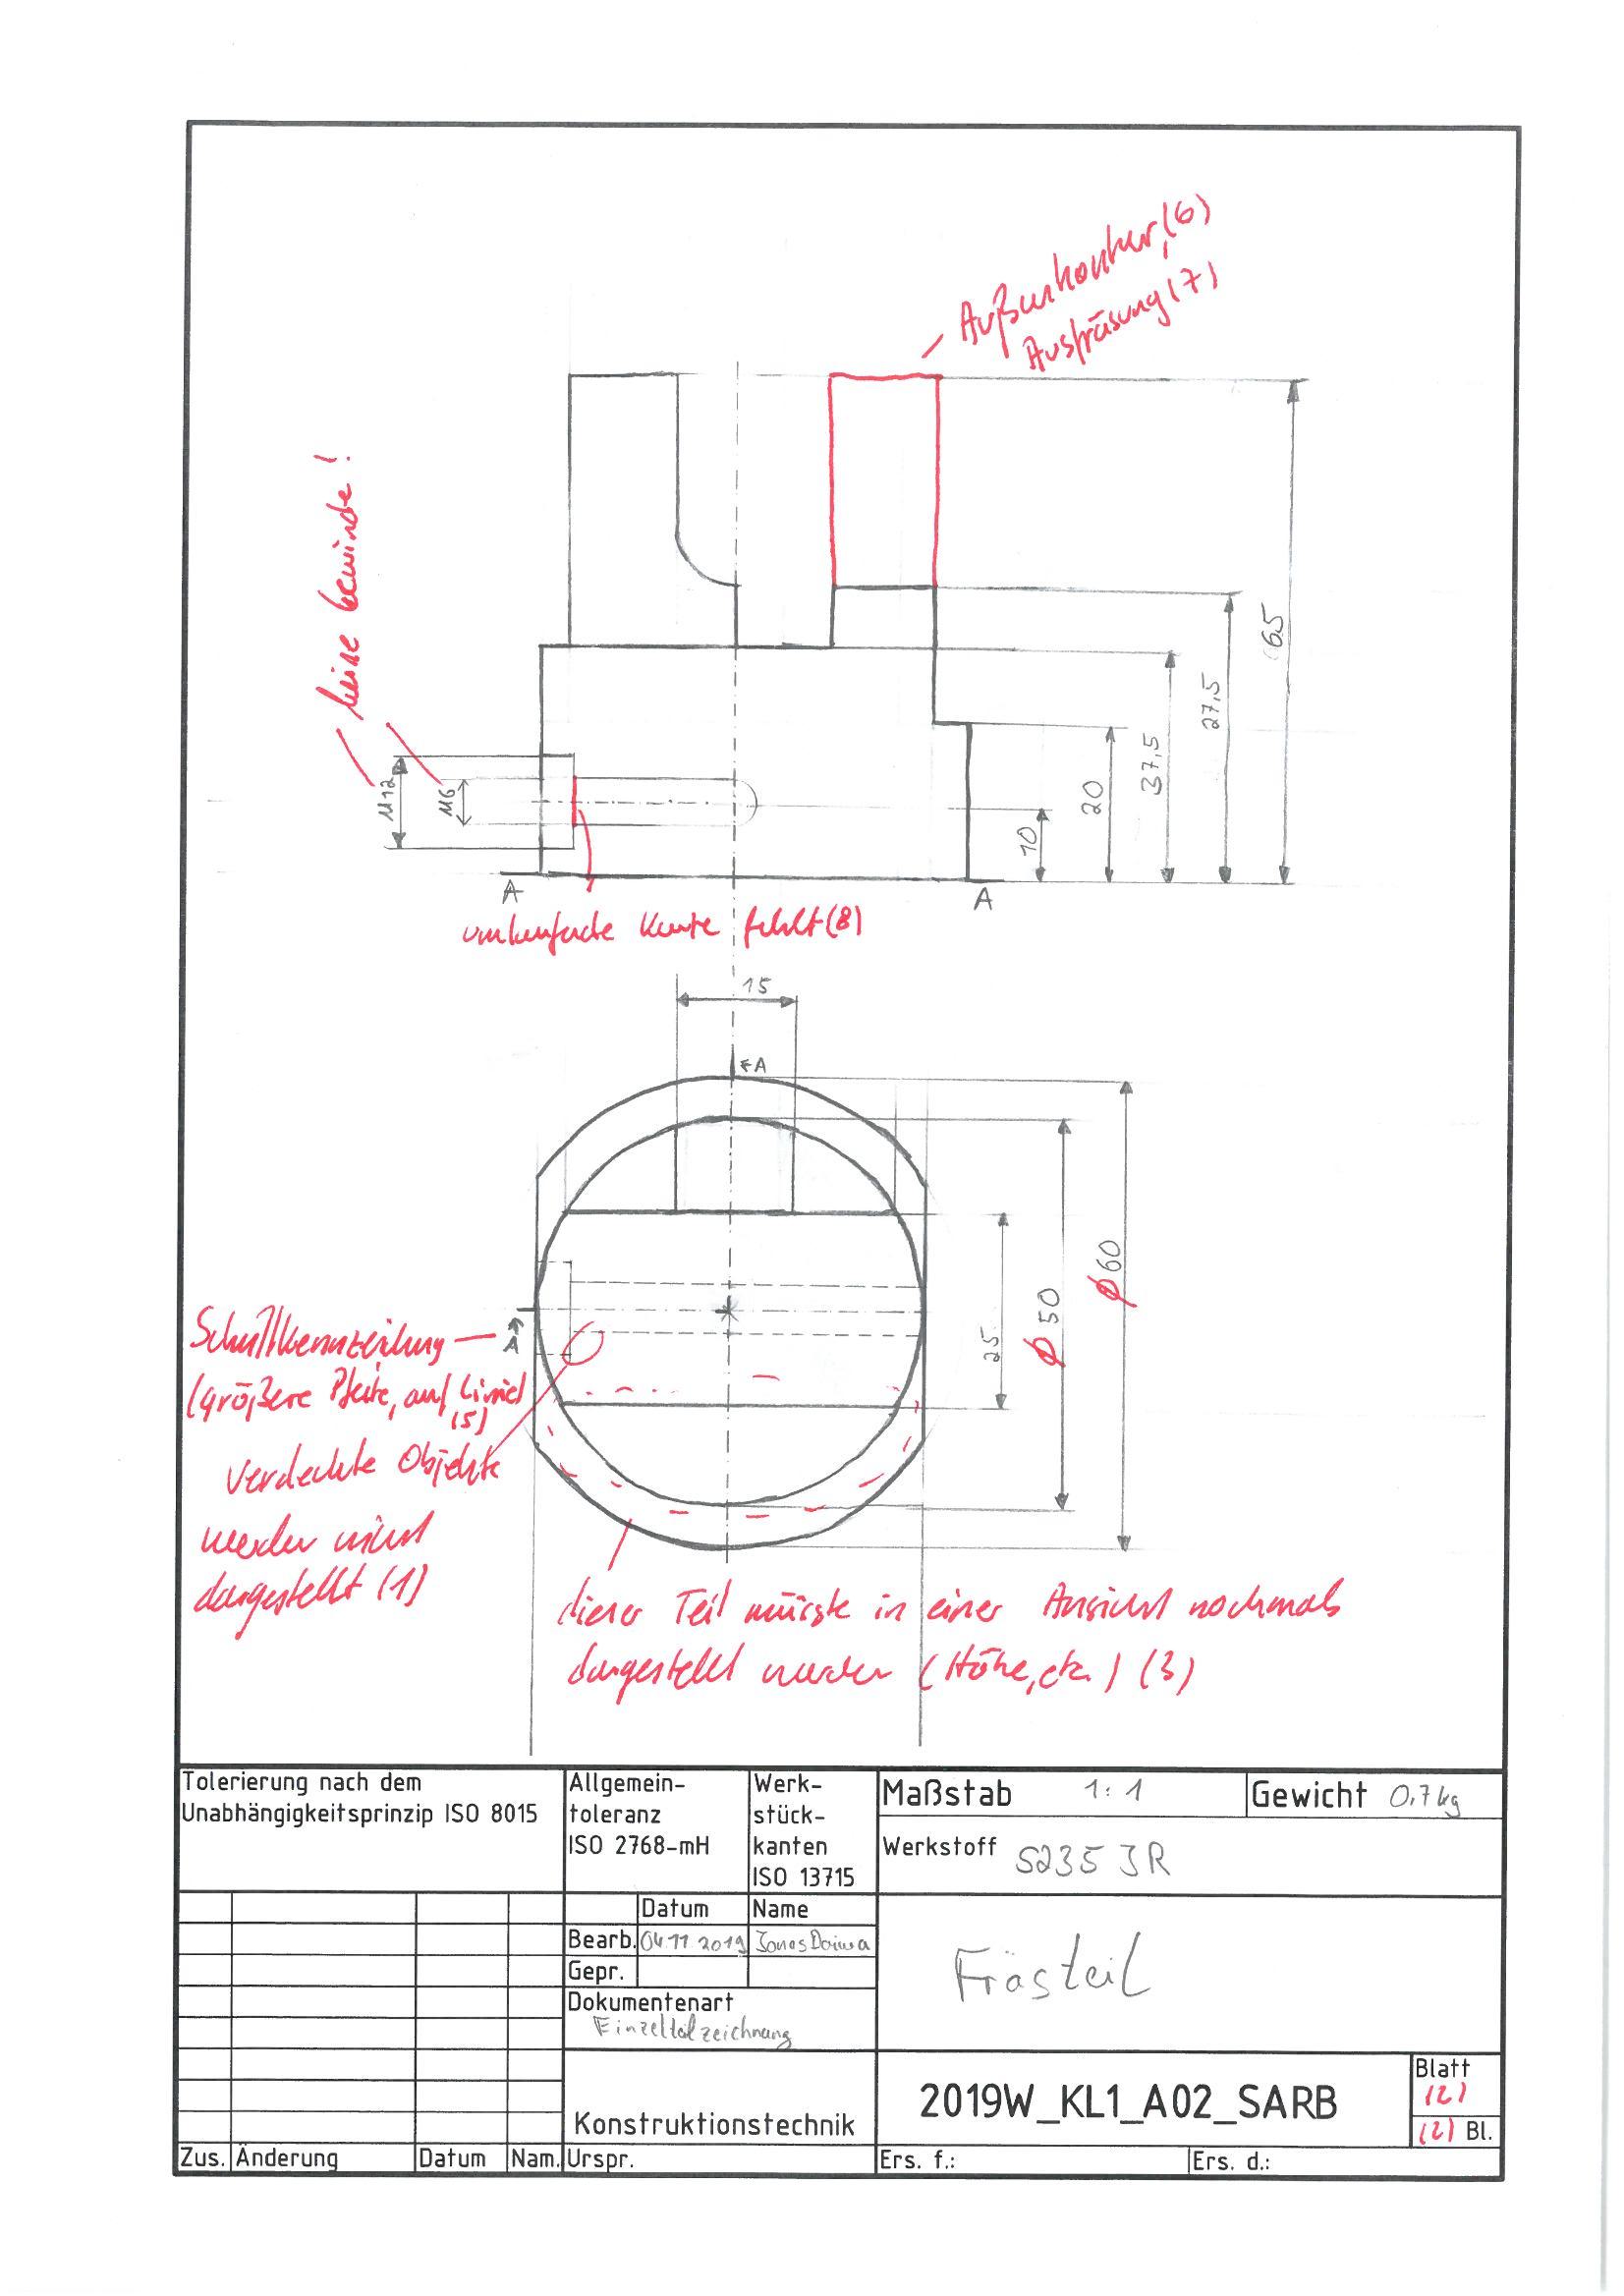 Außenkontur, (6)
Ausfräsung (7)
keine Gewinde !
65
27,5
37,5
20
10
M12
M6
A
A
umlaufende Kante fehlt (8)
15
A
Ø60
Ø50
25
A
(größere Pfeile, auf Linie)
(5)
verdeckte Objekte
werden nicht
dargestellt (1)
dieser Teil müsste in einer Ansicht nochmals
dargestellt werden (Höhe, etc.) (3)
Tolerierung nach dem
Unabhängigkeitsprinzip ISO 8015
Allgemein-
toleranz
ISO 2768-mH
Werk-
stück-
kanten
ISO 13715
Maßstab 1:1
Gewicht 0,7kg
Werkstoff S235 JR
Datum Name
Bearb. 04.11.2019 Jonas
Gepr.
Dokumentenart
Einzelteilzeichnung
Frästeil
Konstruktionstechnik
2019W_KL1_A02_SARB
Blatt
(2)
(2) Bl.
Zus. Änderung Datum Nam. Urspr. Ers. f.: Ers. d.: